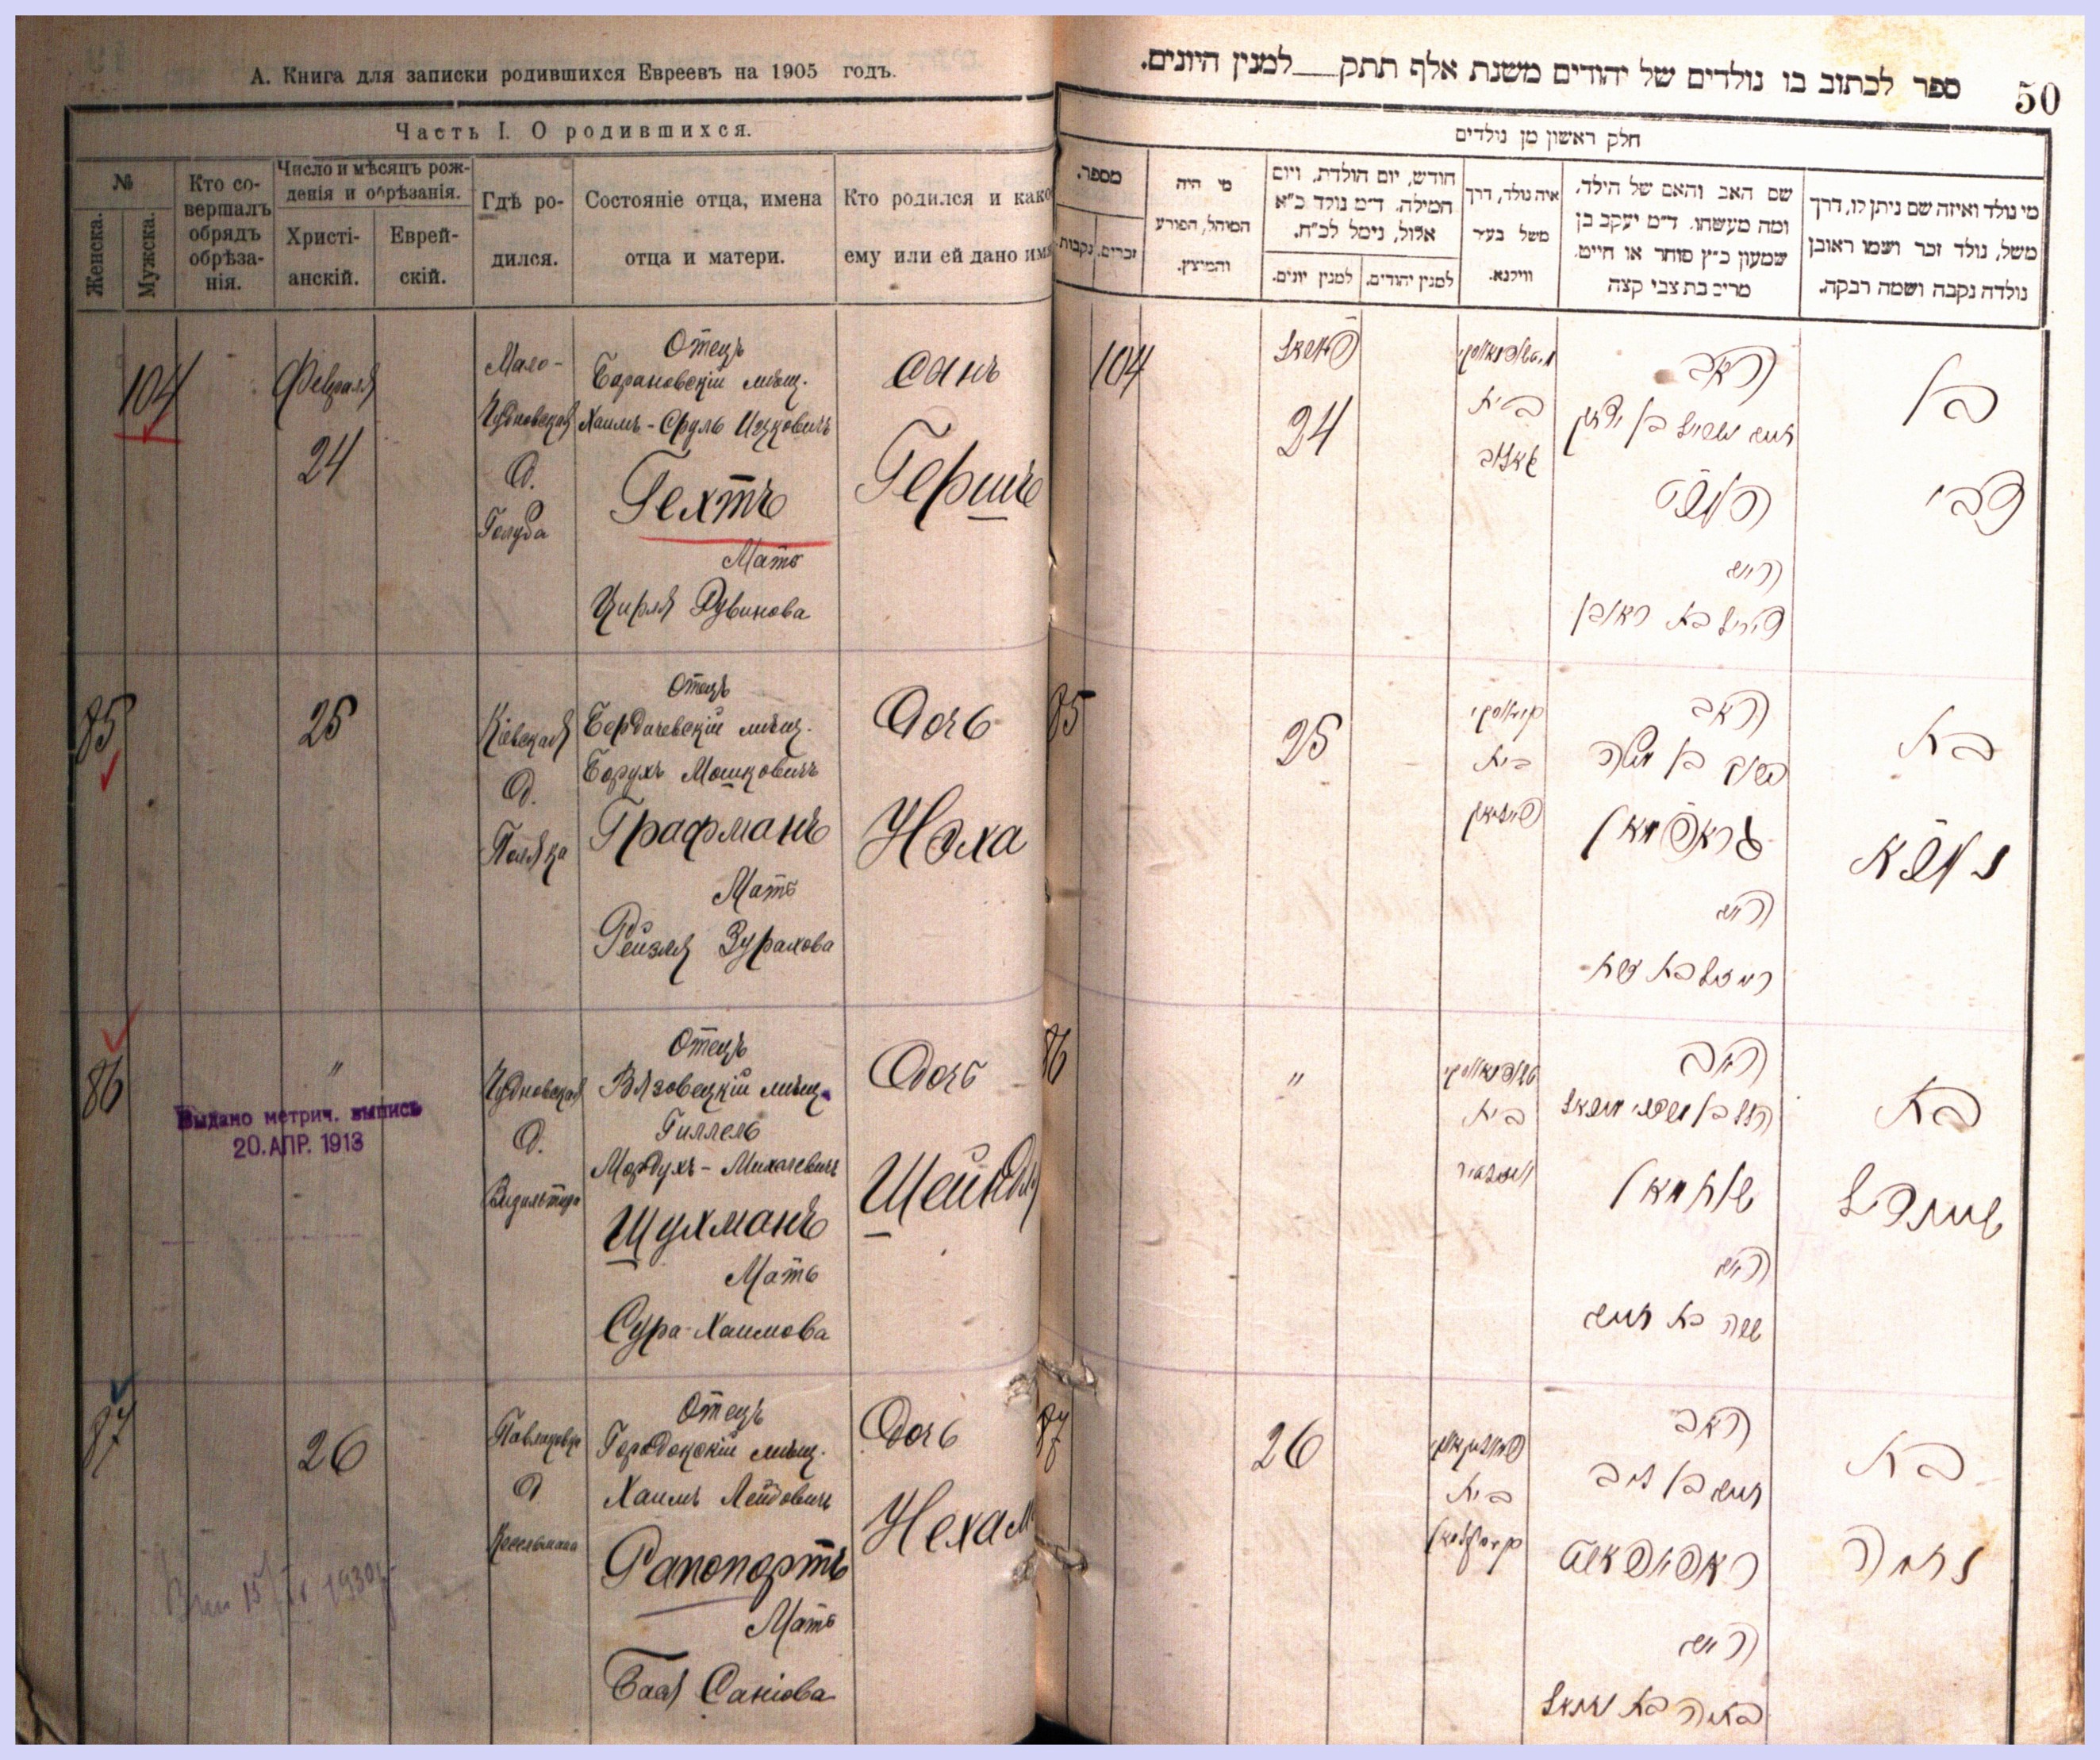 А. Книга для записки родившихся Евреевъ на 1905 годъ.
Часть I. О родившихся.
№
Женска.
Мужска.
Кто со-
вершалъ
обрядъ
обрѣза-
нія.
Число и мѣсяцъ рож-
денія и обрѣзанія.
Христі-
анскій.
Еврей-
скій.
Гдѣ ро-
дился.
Состояніе отца, имена
отца и матери.
Кто родился и како
ему или ей дано имя
104
Февраля
24
Мало-
Чудновская
д.
Голуба
Отецъ
Барановскій мѣщ.
Хаимъ-Сруль Ицковичъ
Гехтъ
Мать
Цирля Рувинова
сынъ
Гершъ
85
25
Кіевская
д.
Поляка
Отецъ
Бердичевскій мѣщ.
Борухъ Мошковичъ
Графманъ
Мать
Рейзля Зурахова
Дочь
Нэха
86
"
Выдано метрич. выпись
20.АПР. 1913
Чудновская
д.
Отецъ
Вязовецкій мѣщ.
Гиллель
Мордухъ-Михелевичъ
Шухманъ
Мать
Сура Хаимова
Дочь
Шейндля
87
26
д
Отецъ
Городокскій мѣщ.
Хаимъ Лейбовичъ
Рапопортъ
Мать
Бася Санѣова
Дочь
Нехам
50
ספר לכתוב בו נולדים של יהודים משנת אלף תתק__למנין היונים.
חלק ראשון מן נולדים
מספר.
נקבות
זכרים.
מי היה
המוהל, הפורע
והמוצץ.
חודש, יום הולדת, ויום
המילה. ד״מ נולד כ״א
אלול, נימל לכ״ח.
למנין יונים.
למנין יהודים.
איה נולד, דרך
משל בעיר
ווילנא.
שם האב והאם של הילד,
ומה מעשהו. ד״מ יעקב בן
שמעון כ״ץ סוחר או חייט.
מרים בת צבי קצה
מי נולד ואיזה שם ניתן לו, דרך
משל, נולד זכר ושמו ראובן
נולדה נקבה ושמה רבקה.
104
24
בית
האב
העכט
האם
צירל בת ראובן
בן
צבי
85
25
בית
האב
ברוך בן משה
גראפמאן
האם
בת
נעכא
86
"
בית
האב
שוחמאן
האם
שרה בת חיים
בת
שיינדל
87
26
בית
האב
חיים בן לייב
ראפופארט
האם
בת
נחמה